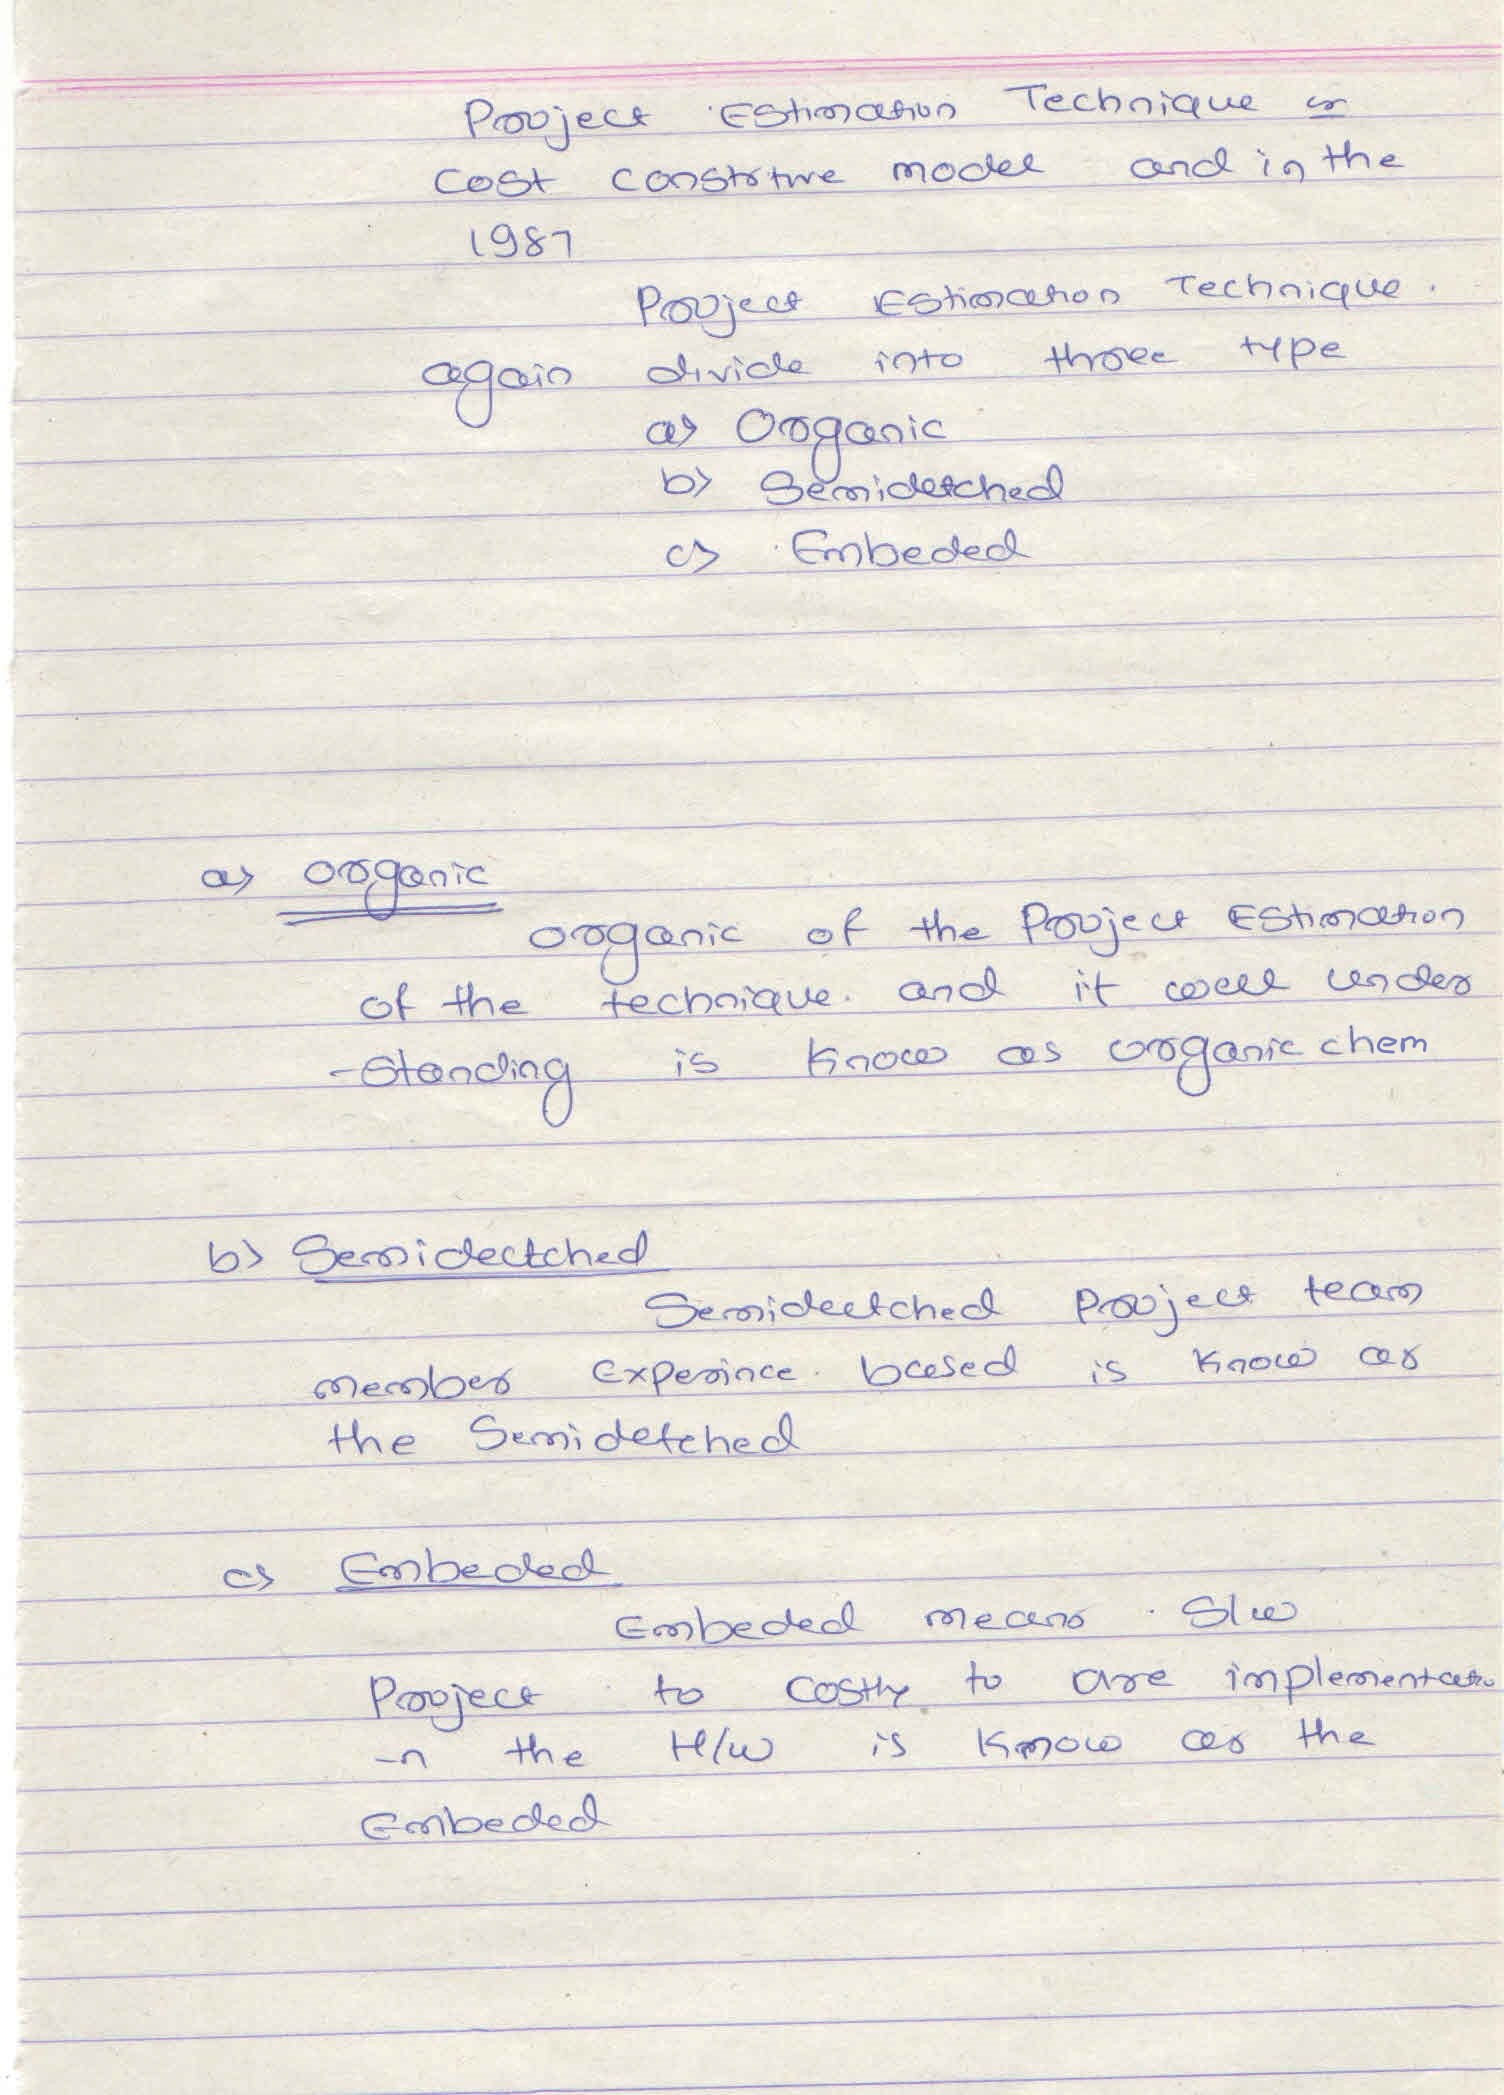 Project Estimation Technique is
cost constrtive model and in the
1987
Project Estimation Technique.
again divide into three type
a> Organic
b> Semidetched
c> Embeded
a> organic
organic of the Project Estimation
of the technique. and it well under
-standing is know as organic chem
b> Semidectched
Semidectched project team
member Experince. based is know as
the Semidetched
c> Embeded
Embeded means S/w
Project to costly to are implementatio
-n the H/w is know as the
Embeded